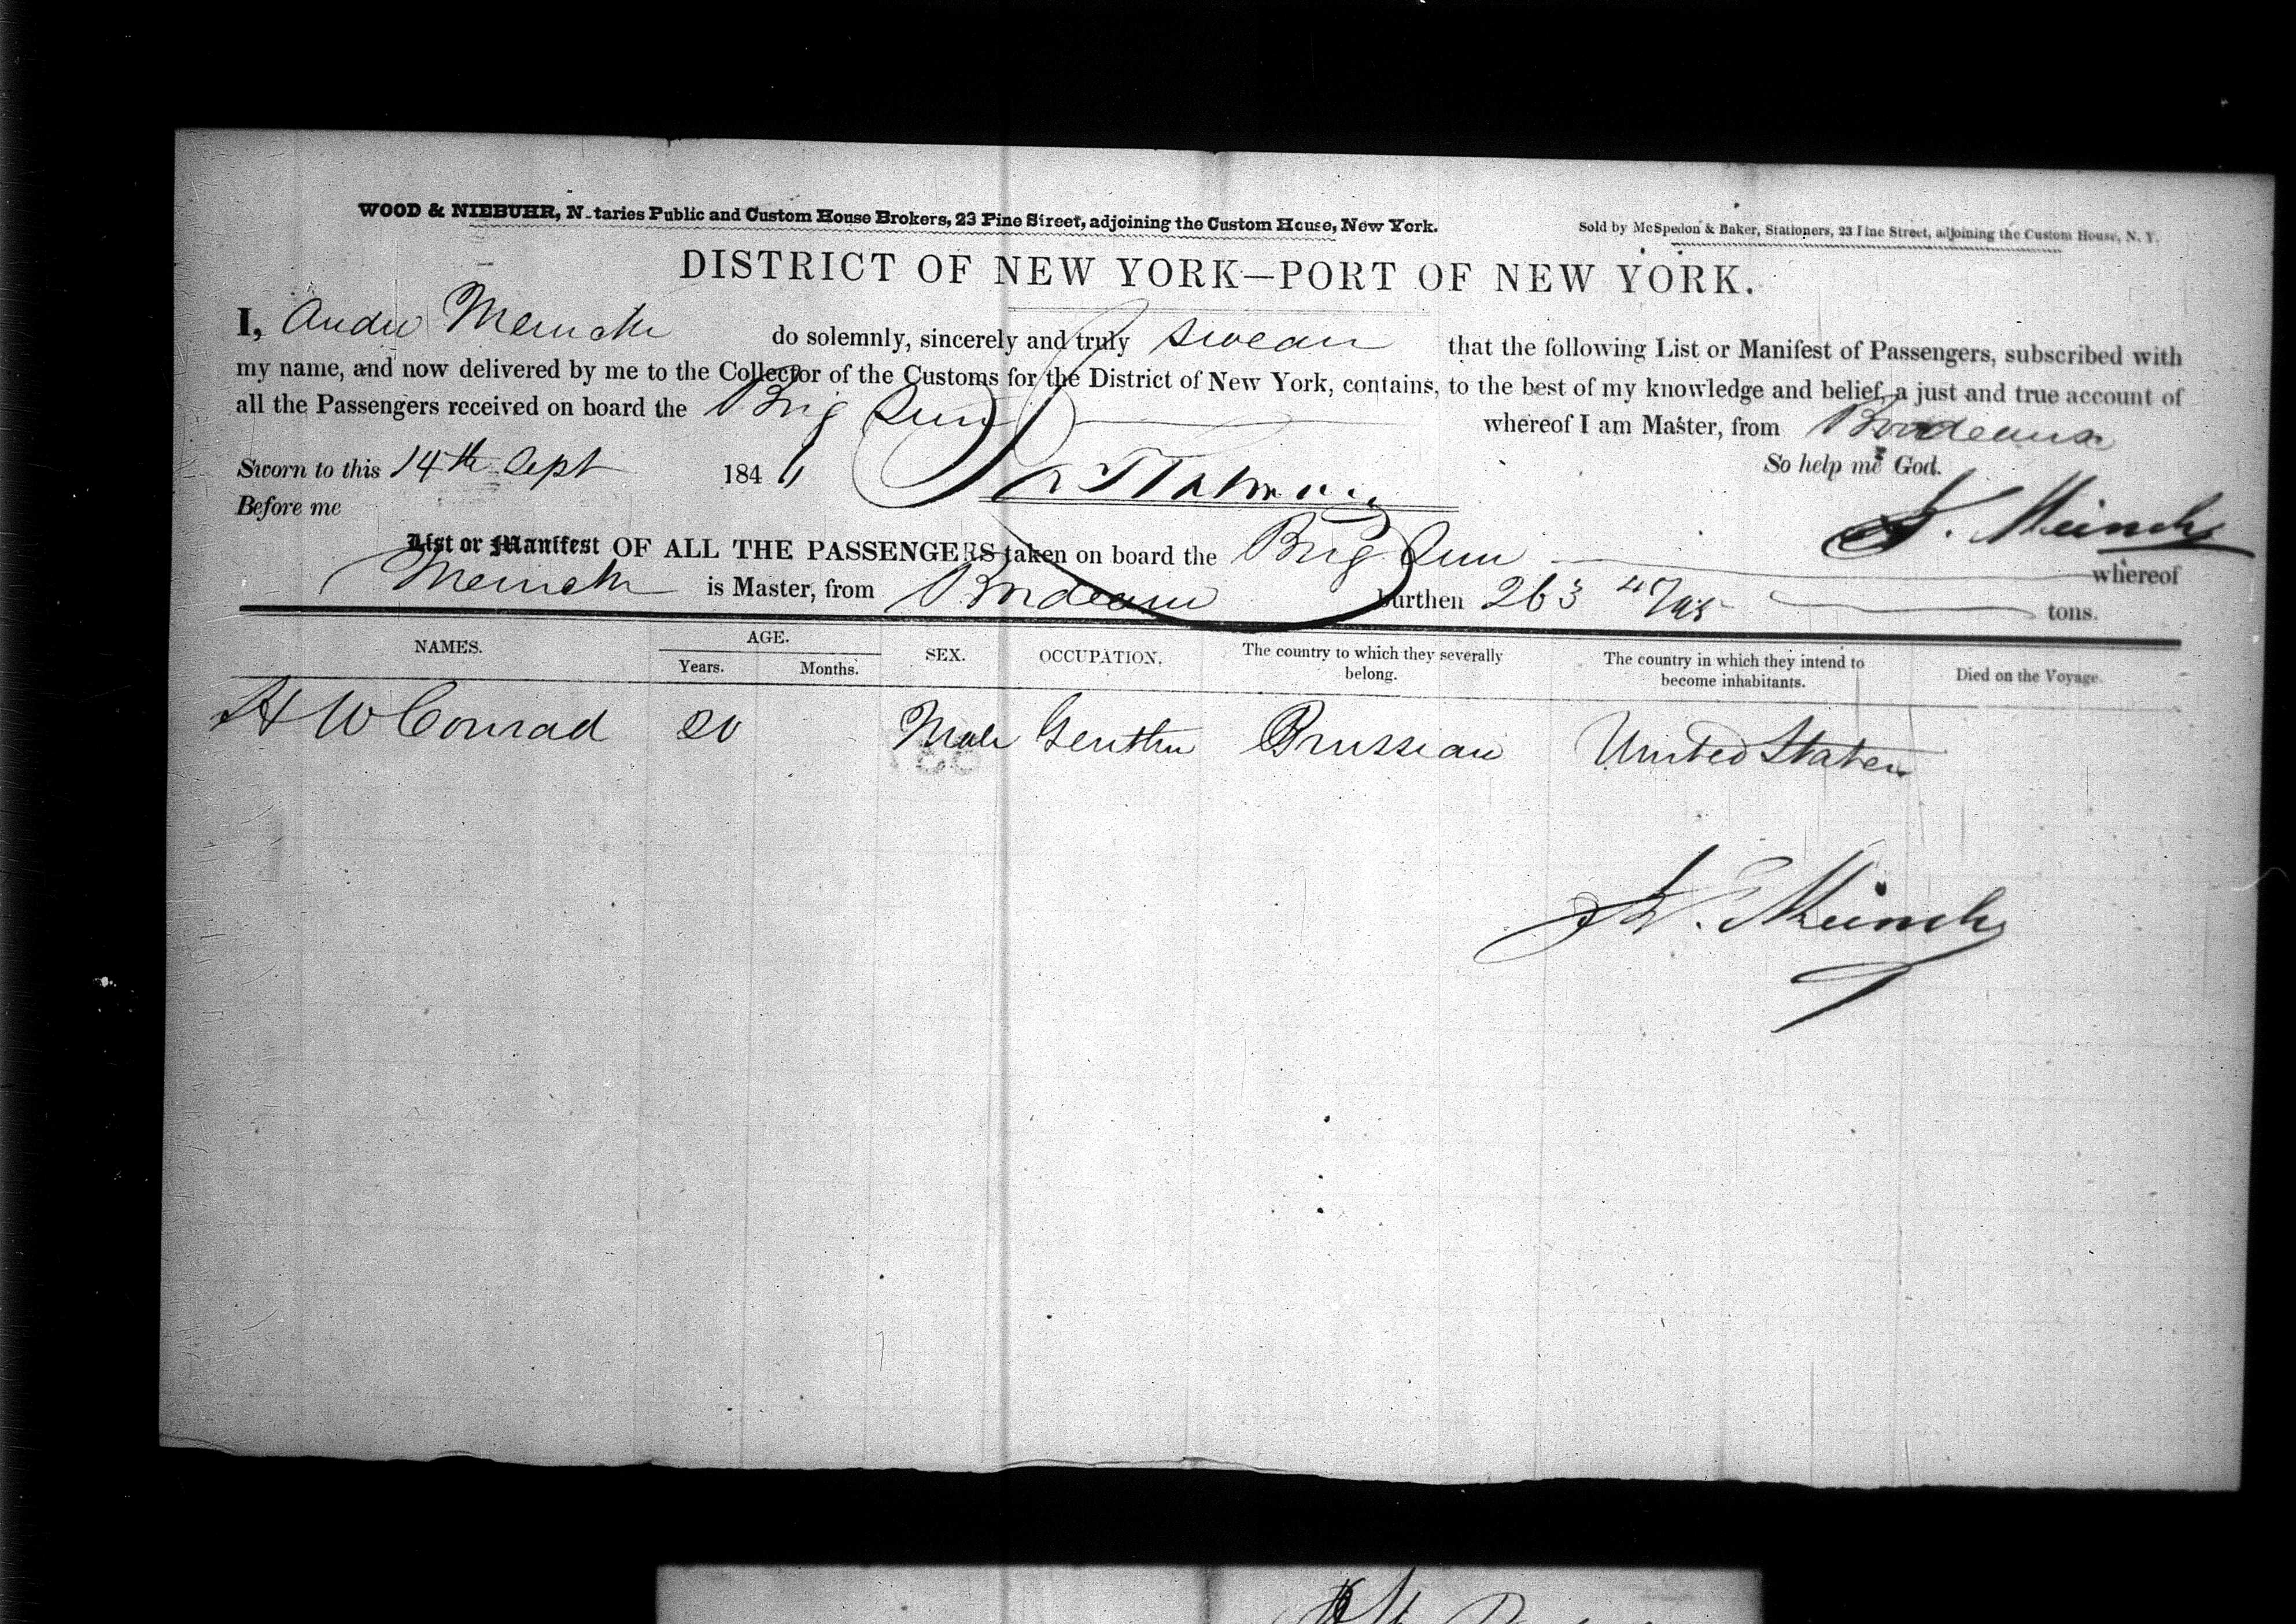 WOOD & NIEBUHR, N_taries Public and Custom House Brokers, 23 Pine Street, adjoining the Custom House, New York.
Sold by McSpedon & Baker, Stationers, 23 Pine Street, adjoining the Custom House, N. Y.
DISTRICT OF NEW YORK—PORT OF NEW YORK.
I, do solemnly, sincerely and truly swear that the following List or Manifest of Passengers, subscribed with
my name, and now delivered by me to the Collector of the Customs for the District of New York, contains, to the best of my knowledge and belief, a just and true account of
all the Passengers received on board the Brig whereof I am Master, from Bordeaux
Sworn to this 14th Sept 184 So help me God.
Before me
List or Manifest OF ALL THE PASSENGERS taken on board the Brig whereof
is Master, from Bordeaux burthen 263 tons.
NAMES. AGE. Years. Months. SEX. OCCUPATION. The country to which they severally belong. The country in which they intend to become inhabitants. Died on the Voyage.
H W Conrad 20 Male Gentln Prussian United States